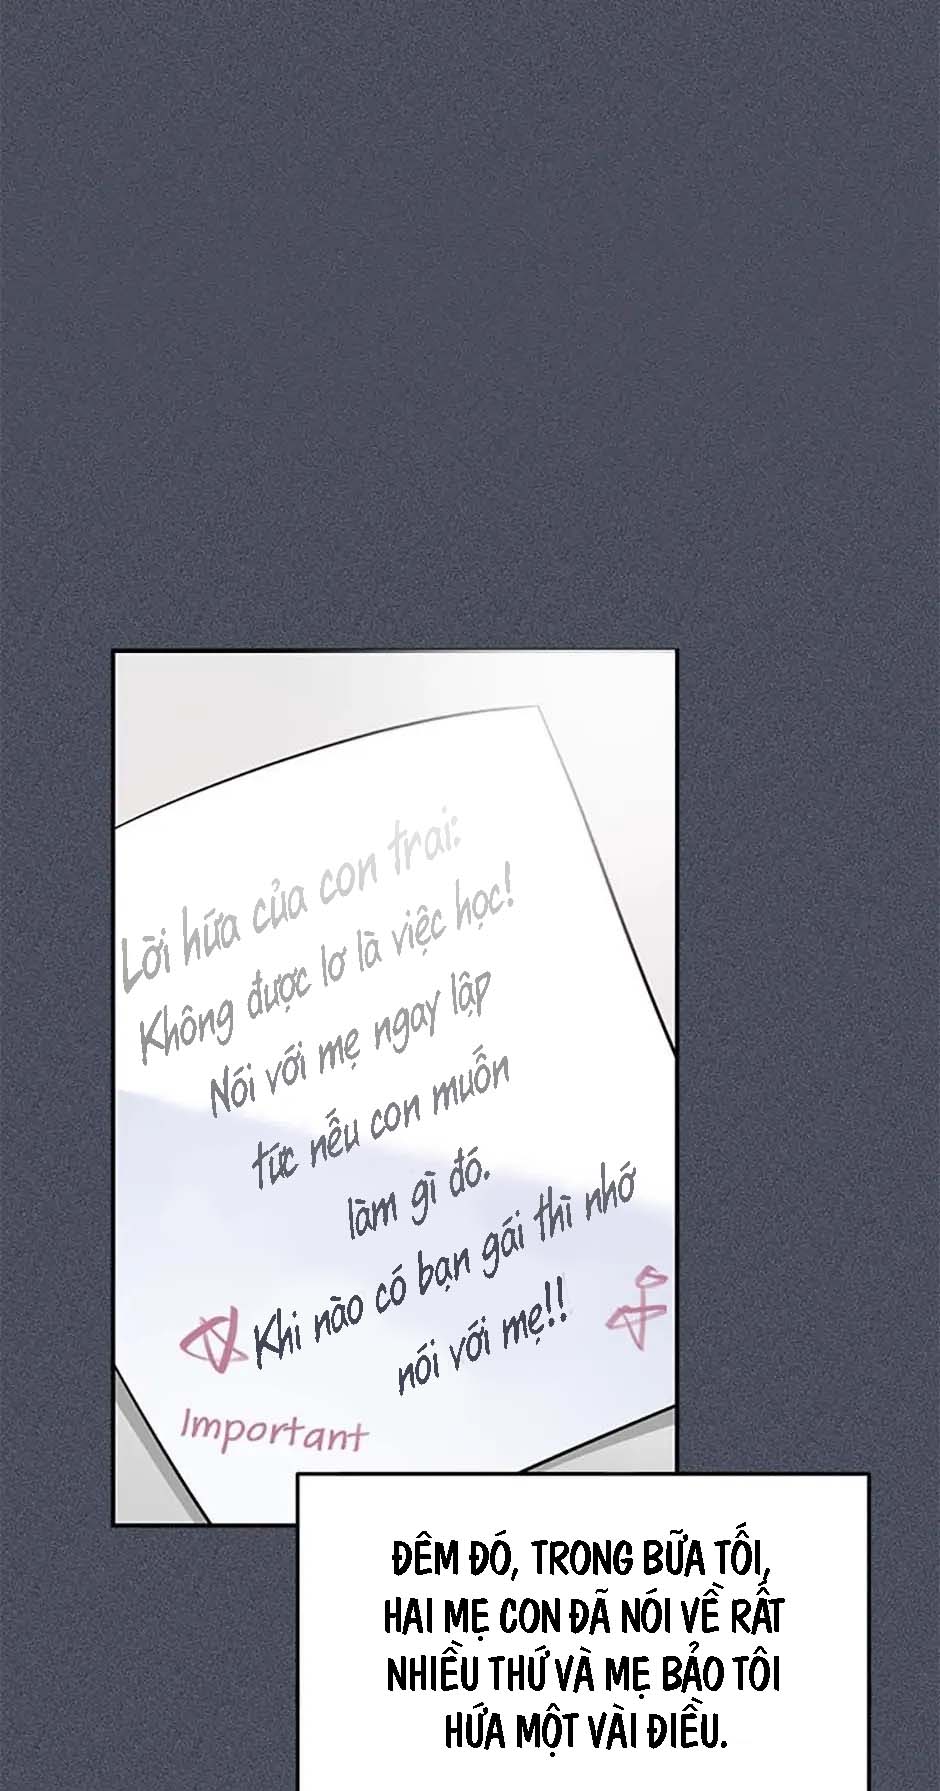 Lời hứa của con trai:
Không được lơ là việc học!
Nói với mẹ ngay lập
tức nếu con muốn
làm gì đó.
Khi nào có bạn gái thì nhớ
nói với mẹ!!
Important
ĐÊM ĐÓ, TRONG BỮA TỐI,
HAI MẸ CON ĐÃ NÓI VỀ RẤT
NHIỀU THỨ VÀ MẸ BẢO TÔI
HỨA MỘT VÀI ĐIỀU.